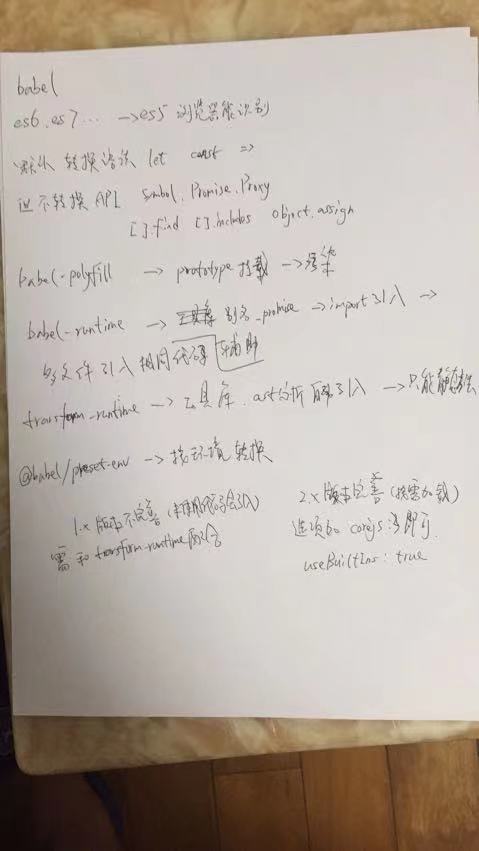 babel
es6.es7... → es5 浏览器能识别
默认 转换语法 let const =>
但不转换API Symbol. Promise. Proxy
[].find [].includes Object.assign
babel-polyfill → prototype 挂载 → 污染
babel-runtime → 别名_promise → import 引入 →
多文件引入相同代码 辅助
transform-runtime → 工具库. ast分析 引入 → 只能
@babel/preset-env → 找环境转换
1.x 版本不完善(未用代码会引入)
需和 transform-runtime 配合
2.x 版本完善(按需加载)
选项加 corejs 即可.
useBuiltIns: true